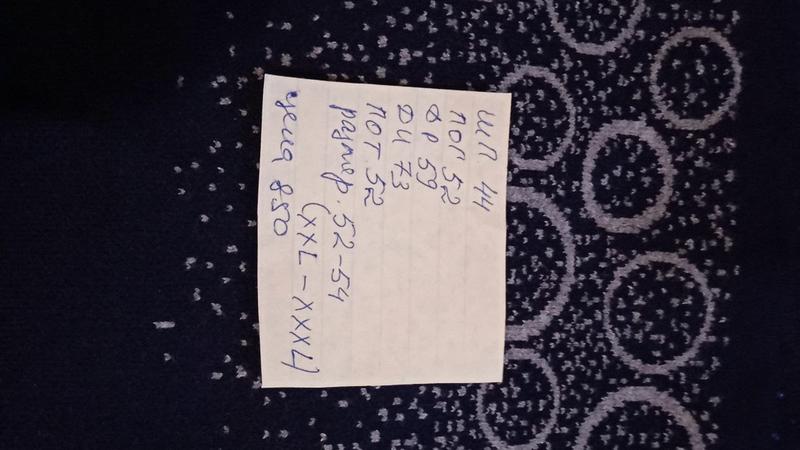 шп. 44
пог 52
др 59
ди 73
пот. 52
размер. 52-54
(XXL - XXXL)
цена 850